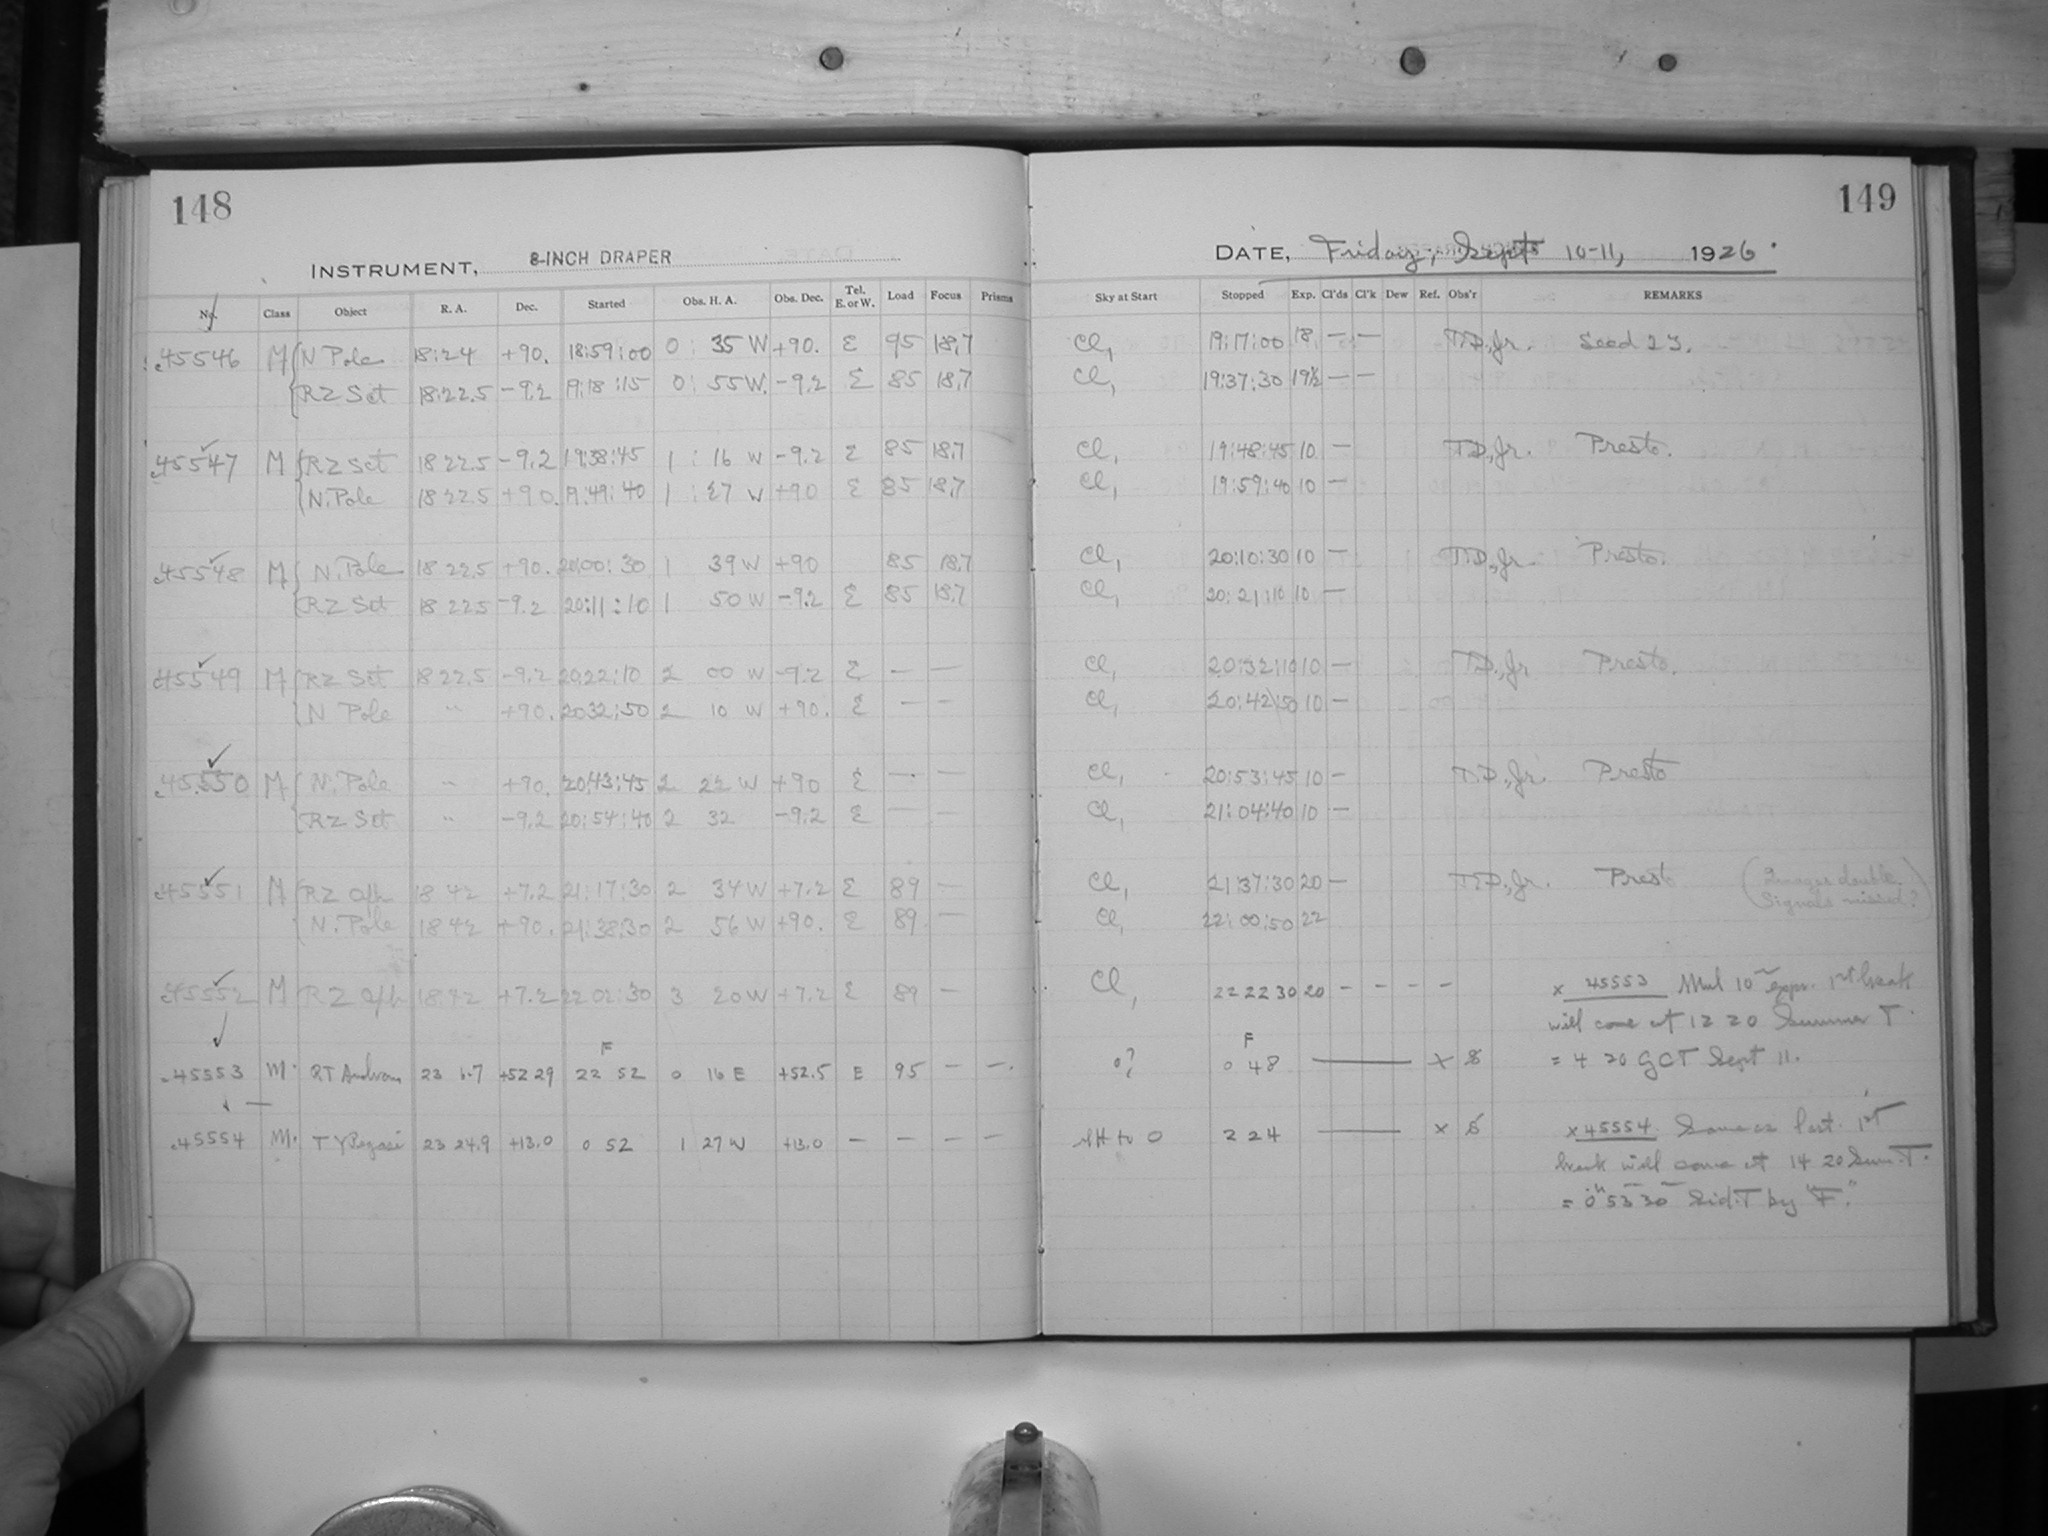 148
INSTRUMENT, 8-INCH DRAPER
No. Class Object R. A. Dec. Started Obs. H. A. Obs. Dec. Tel. E. or W. Load Focus Prisms
45546 M N Pole 18:24 +90. 18:59:00 0: 35 W +90. E 95 18.7
RZ Sct 18:22.5 -9.2 19:18:15 0: 55 W. -9.2 E 85 18.7
45547 M RZ Sct 18 22.5 -9.2 19:38:45 1: 16 W -9.2 E 85 18.7
N. Pole 18 22.5 +90. 19:49:40 1: 27 W +90 E 85 18.7
45548 M N. Pole 18 22.5 +90. 20:00:30 1 39 W +90 85 18.7
RZ Sct 18 22.5 -9.2 20:11:10 1 50 W -9.2 E 85 18.7
45549 M RZ Sct 18 22.5 -9.2 20:22:10 2 00 W -9.2 E — —
N Pole " +90. 20:32:50 2 10 W +90. E — —
45550 M N. Pole " +90. 20:43:45 2 22 W +90 E — —
RZ Sct " -9.2 20:54:40 2 32 -9.2 E — —
45551 M RZ Oph 18 42 +7.2 21:17:30 2 34 W +7.2 E 89 —
N. Pole 18 42 +90. 21:38:30 2 56 W +90. E 89 —
45552 M RZ Oph 18 42 +7.2 22 02:30 3 20 W +7.2 E 89 —
F
45553 M. RT Androm 23 6.7 +52 29 22 52 0 16 E +52.5 E 95 — —
45554 M. TY Pegasi 23 24.9 +13.0 0 52 1 27 W +13.0 — — — —
149
DATE, Friday, Sept 10-11, 1926.
Sky at Start Stopped Exp. Cl'ds Cl'k Dew Ref. Obs'r REMARKS
Cl, 19:17:00 18, — — T.D., Jr. Seed 23.
Cl, 19:37:30 19½ — —
Cl, 19:48:45 10 — T.D., Jr. Presto.
Cl, 19:59:40 10 —
Cl, 20:10:30 10 — T.D., Jr. Presto.
Cl, 20:21:10 10 —
Cl, 20:32:10 10 — T.D., Jr Presto.
Cl, 20:42:50 10 —
Cl, 20:53:45 10 — T.D., Jr. Presto
Cl, 21:04:40 10 —
Cl, 21:37:30 20 — T.D., Jr. Prest (Images double.
Signals missed?)
Cl, 22:00:50 22
Cl, 22 22 30 20 - - - - x 45553 Mul 10m expo. 1st break
will come at 12 20 Summer T.
F
0? 0 48 — x = 4 20 GCT Sept 11.
0 2 24 — x x 45554. Same as last. 1st
break will come at 14 20 Sum. T.
= 0h 53m 30 Sid. T by "F."